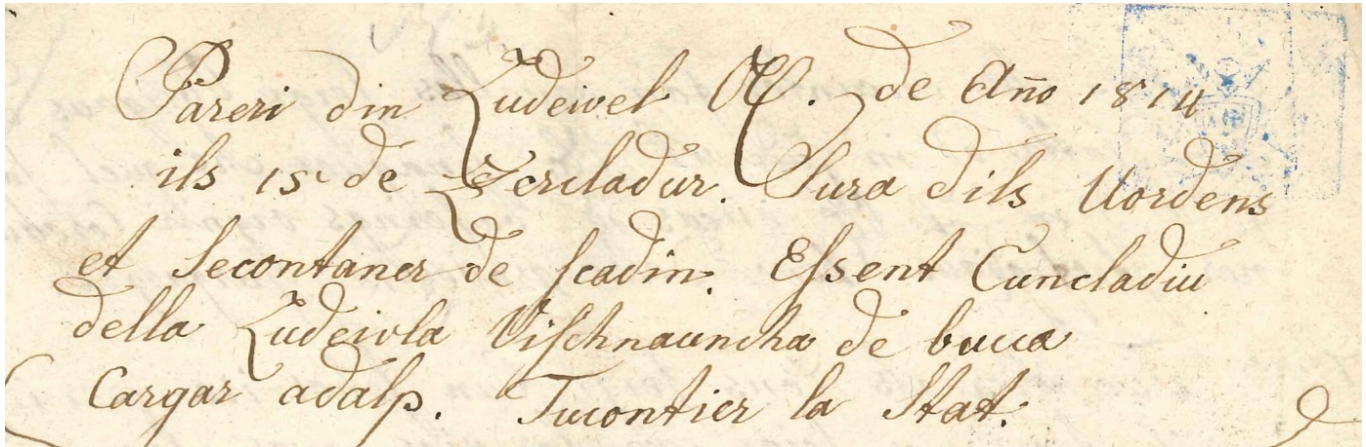 Pareri din Ludeivel M. de Año 1814
ils 15 de Zercladur. Sura dils Uordens
et Secontaner de scadin. Essent Cuncladiu
della Ludeivla Vischnauncha de bucca
Cargar adalp. Tucontier la Stat.